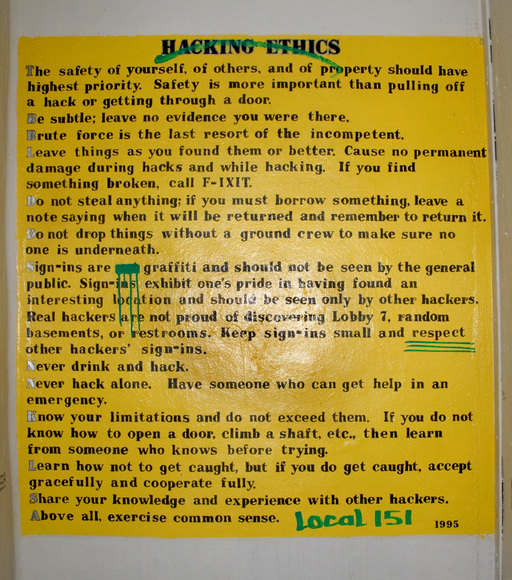 HACKING ETHICS
The safety of yourself, of others, and of property should have
highest priority. Safety is more important than pulling off
a hack or getting through a door.
Be subtle; leave no evidence you were there.
Brute force is the last resort of the incompetent.
Leave things as you found them or better. Cause no permanent
damage during hacks and while hacking. If you find
something broken, call F-IXIT.
Do not steal anything; if you must borrow something, leave a
note saying when it will be returned and remember to return it.
Do not drop things without a ground crew to make sure no
one is underneath.
Sign-ins are graffiti and should not be seen by the general
public. Sign-ins exhibit one's pride in having found an
interesting location and should be seen only by other hackers.
Real hackers are not proud of discovering Lobby 7, random
basements, or restrooms. Keep sign-ins small and respect
other hackers' sign-ins.
Never drink and hack.
Never hack alone. Have someone who can get help in an
emergency.
Know your limitations and do not exceed them. If you do not
know how to open a door, climb a shaft, etc., then learn
from someone who knows before trying.
Learn how not to get caught, but if you do get caught, accept
gracefully and cooperate fully.
Share your knowledge and experience with other hackers.
Above all, exercise common sense. Local 151
1995